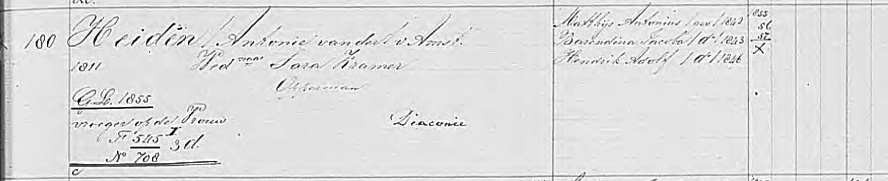 180 Heiden / Antonie van der / v Amst.
1811 Ped Sara Kramer
Opperman
G.B. 1855
vroeger op de Vrouw
F 545 I 3 d.
No 708
Diaconie
Matthijs Antonius / geb / 1842
Barendina Jacoba / do / 1843
Hendrik Adolf / do / 1846
855
56
57
X